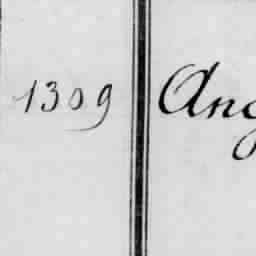 1309 Ang